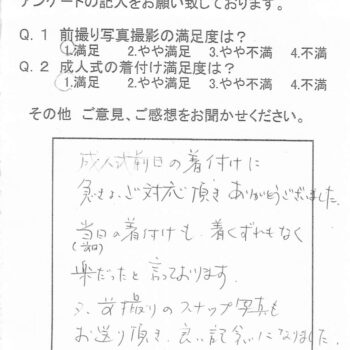 アンケートの記入をお願い致しております。
Q.1 前撮り写真撮影の満足度は?
1.満足 2.やや満足 3.やや不満 4.不満
Q.2 成人式の着付け満足度は?
1.満足 2.やや満足 3.やや不満 4.不満
その他 ご意見、ご感想をお聞かせください。
成人式前日の着付けに
急きょ、ご対応頂き ありがとうございました。
当日の着付けも、着くずれもなく
楽だったと 言っております。
又、前撮りのスナップ写真も
お送り頂き、良い記念になりました。